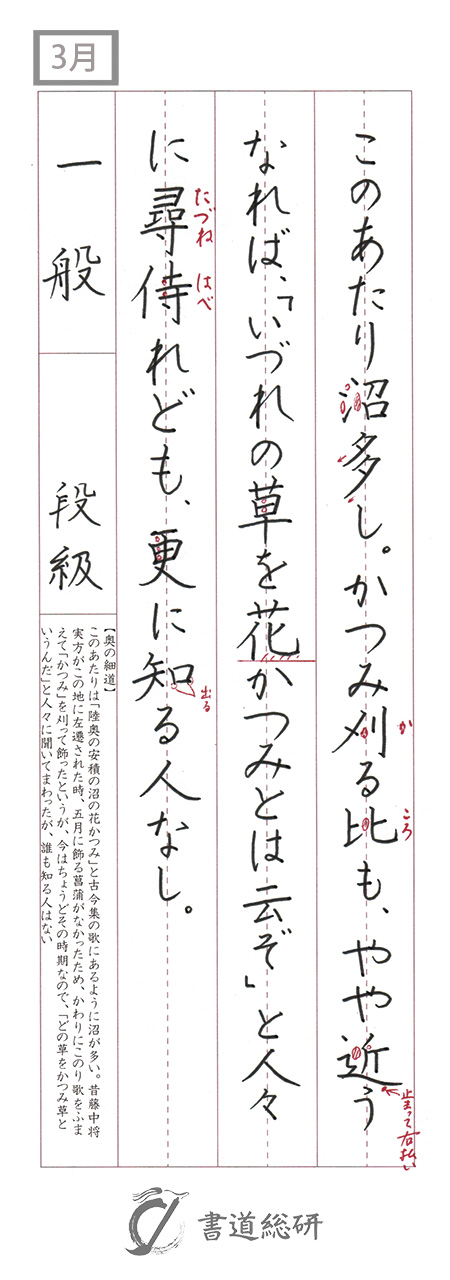 3月
このあたり沼多し。かつみ刈る比も、やや近う
か
ころ
止まって右払い
なれば、「いづれの草を花かつみとは云ぞ」と人々
に尋侍れども、更に知る人なし。
たづね
はべ
出る
一般
段級
【奥の細道】
このあたりは「陸奥の安積の沼の花かつみ」と古今集の歌にあるように沼が多い。昔藤中将
実方がこの地に左遷された時、五月に飾る菖蒲がなかったため、かわりにこのり歌をふま
えて「かつみ」を刈って飾ったというが、今はちょうどその時期なので、「どの草をかつみ草と
いうんだ」と人々に聞いてまわったが、誰も知る人はない
書道総研